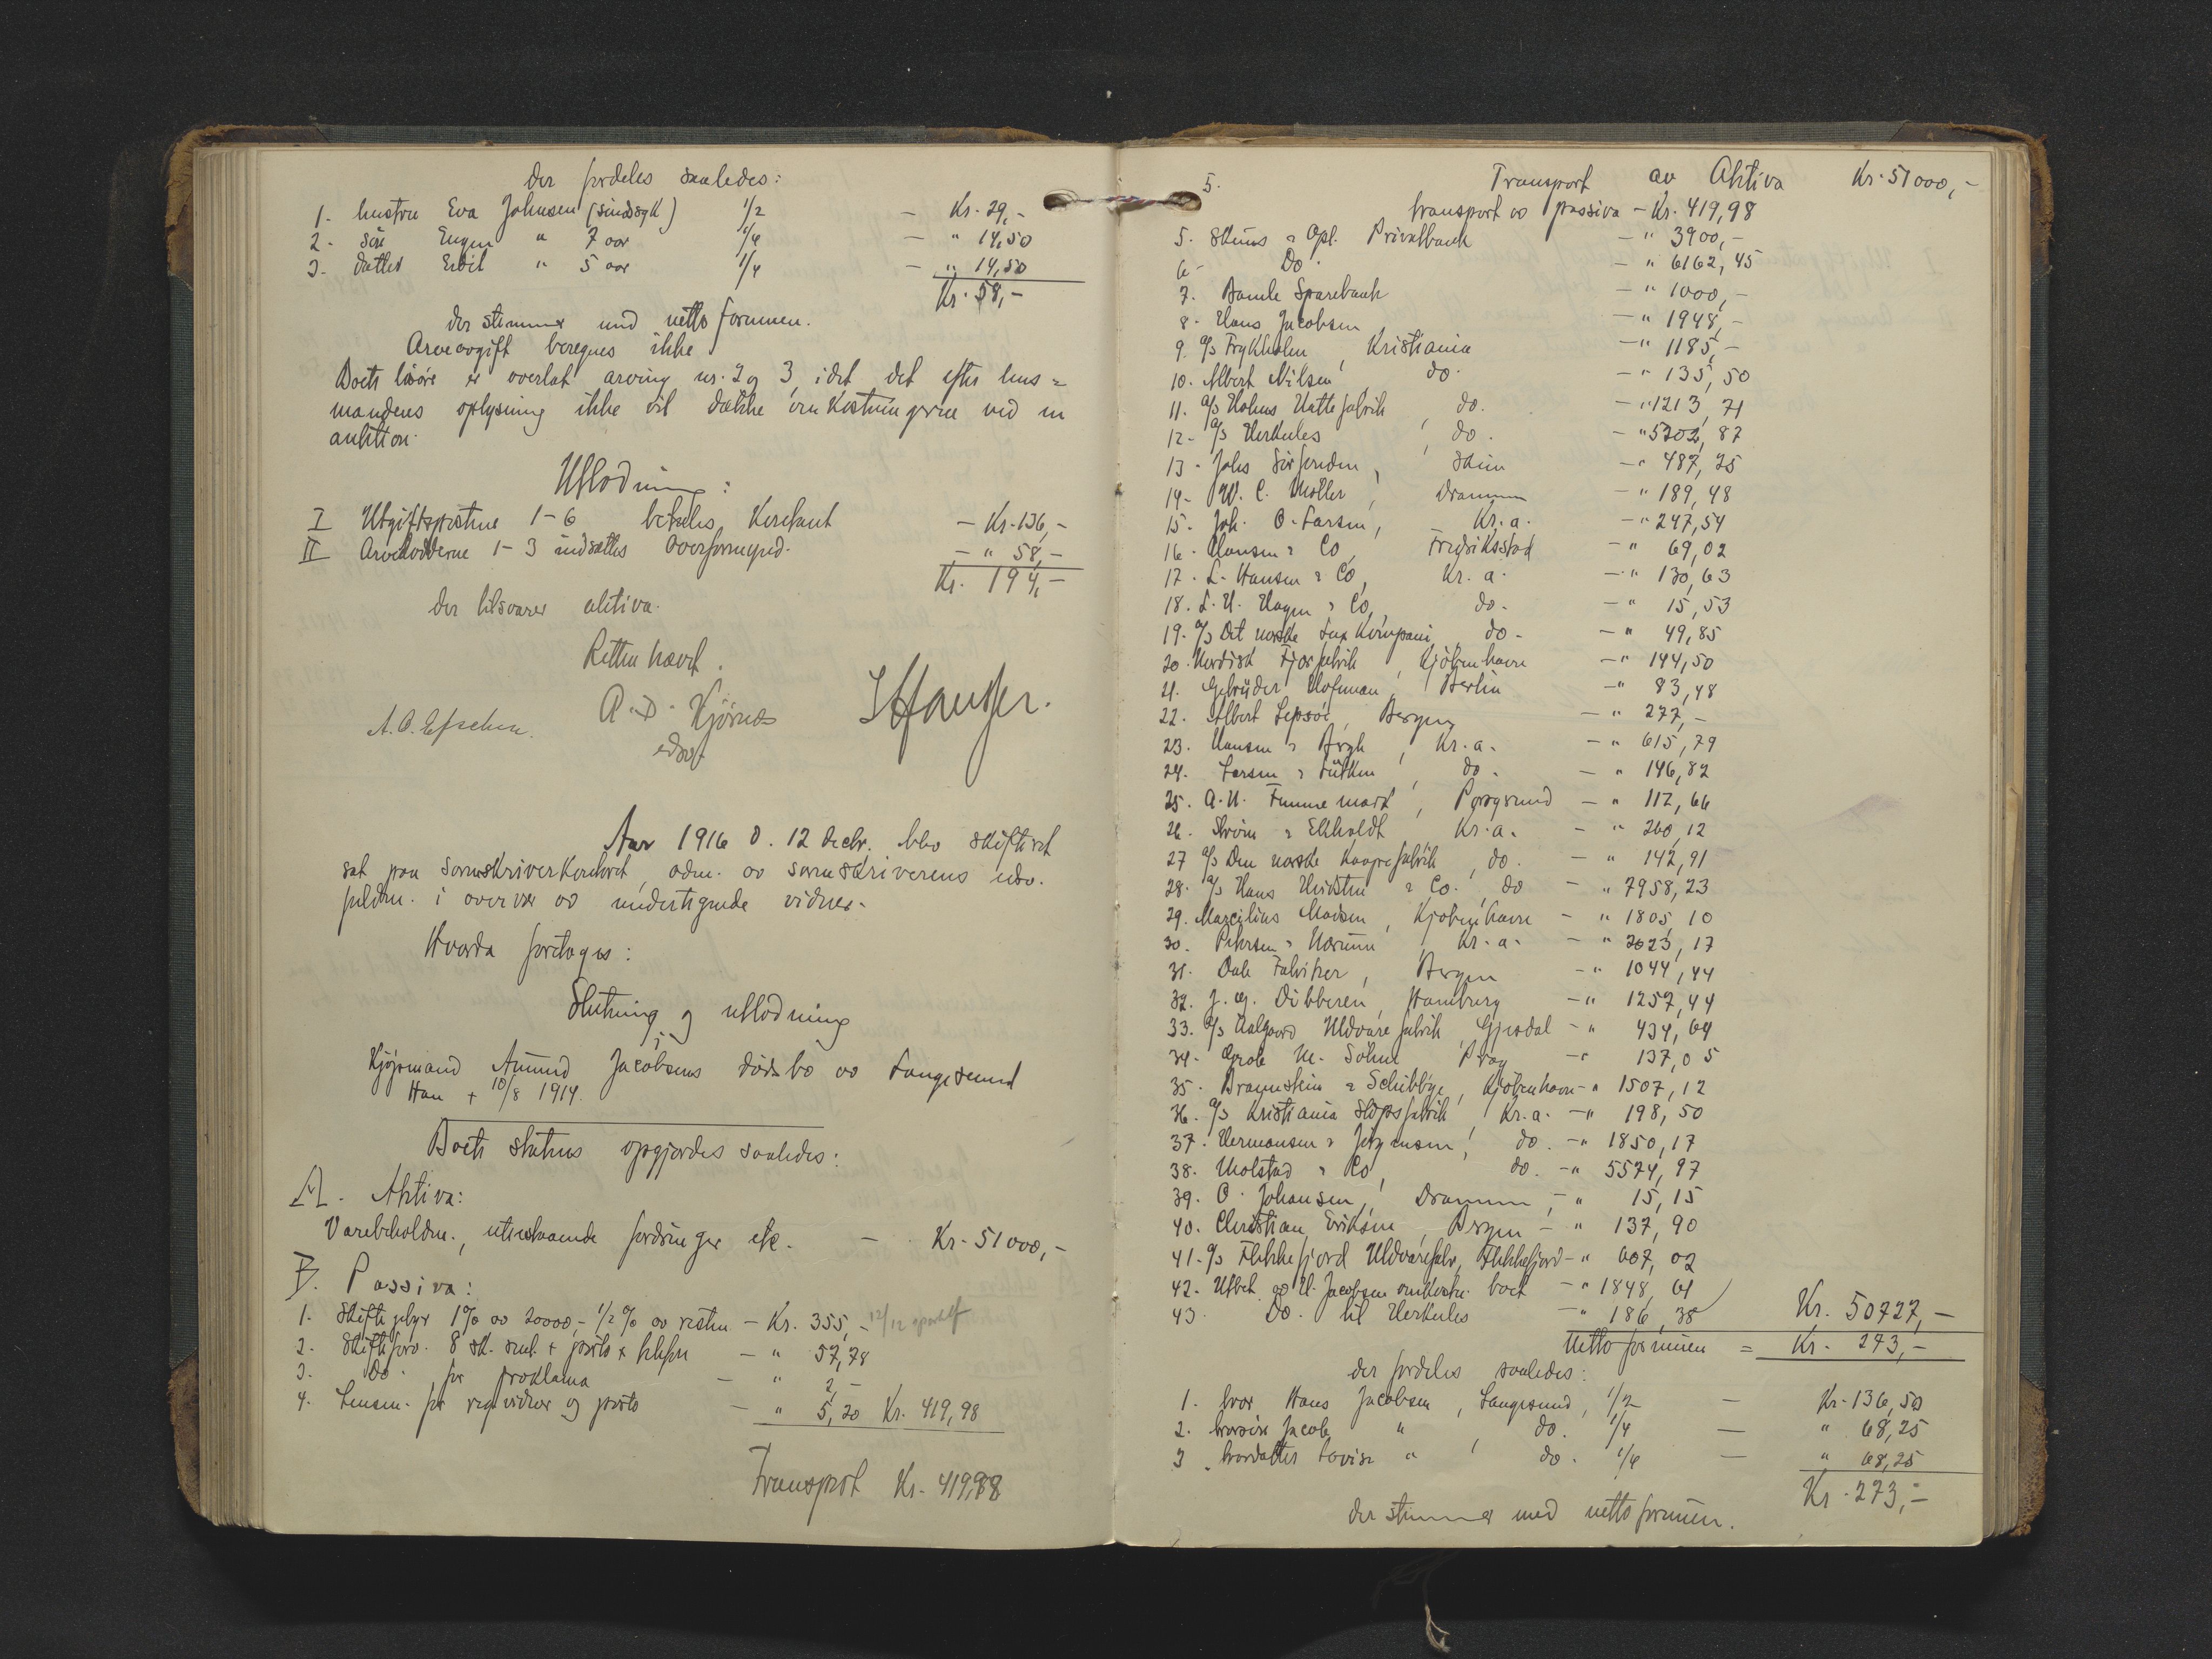 der fordeles saaledes:
1. hustru Eva Johnsen (sindssyk) 1/2 – Kr. 29,-
2. søn Eugen " 7 aar 1/4 – " 14,50
3. datter " 5 aar 1/4 – " 14,50
Kr. 58,-
der stemmer med netto formuen.
Arveavgift beregnes ikke.
Boets løsøre er overlat arving nr. 2 og 3, idet det efter lens=
mandens oplysning ikke vil dække omkostningerne ved en
auktion.
Utlodning:
I Utgiftsposterne 1-6 betales kontant – Kr. 136,-
II Arvelodderne 1-3 indsættes overformynd. – " 58,-
Kr. 194,-
der tilsvarer aktiva.
Retten hævet.
A. D. Kjørnes
edsv.
Aar 1916 d. 12 decbr. blev skifteret
sat paa sorenskriverkontoret, adm. av sorenskriverens edsv.
fuldm. i overvær av undertegnede vidner.
Hvorda foretoges:
Slutning og utlodning
i
Kjøpmand Amund Jacobsens dødsbo av Langesund
Han + 10/8 1914.
Boets status opgjordes saaledes:
A. Aktiva:
Varebeholdn., utestaaende fordringer etc. – Kr. 51000,-
B. Passiva:
1. Skiftegebyr 1% av 20000,- 1/2% av resten – Kr. 355,- 12/12
2. Skifteforv. 8 sk. porto – " 57,78
3. do. for proklama – " 2,-
4. Lensm. for reg. vidner og porto – " 5,20 Kr. 419,98
Transport Kr. 419,98
5. Transport av Aktiva Kr. 51000,-
transport av passiva – Kr. 419,98
5. Skiens & Opl. Privatbank – " 3900,-
6. Do. – " 6162,45
7. Bamle Sparebank – " 1000,-
8. Hans Jacobsen – " 1948,-
9. A/S Frykholm, Kristiania – " 1185,-
10. Albert Nilsen, do. – " 135,50
11. A/S Holms Hattefabrik, do. – " 1213,71
12. A/S Herkules, do. – " 5702,87
13. Johs Skien – " 487,25
14. W. C. Møller, Drammen – " 189,48
15. Joh. O. Larsen, Kr.a. – " 247,54
16. Hansen & Co, Fredriksstad – " 69,02
17. L. Hansen & Co, Kr.a. – " 130,63
18. L. H. Hagen & Co, do. – " 15,53
19. A/S Det norske Lux Kompani, do. – " 49,85
20. Nordisk Fjærfabrik, Kjøbenhavn – " 144,50
21. Gebrüder Hofman, Berlin – " 83,48
22. Albert Lepsøe, Bergen – " 277,-
23. Hansen & Bergh, Kr.a. – " 615,79
24. Larsen & Lütken, do. – " 146,82
25. A. H. Porsgrund – " 112,66
26. Strøm & Ekholdt, Kr.a. – " 260,12
27. A/S Den norske Kaapefabrik, do. – " 142,91
28. A/S Hans Heidsten & Co., do – " 7958,23
29. Marcilius Madsen, Kjøbenhavn – " 1805,10
30. Petersen & Kr.a. – " 2023,17
31. Dale Fabriker, Bergen – " 1044,44
32. J. G. Dübberen, Hamburg – " 1257,44
33. A/S Aalgaard Uldvarefabrik, Gjesdal – " 434,64
34. Grab M. Söhne, Prag – " 137,05
35. Braunstein & Schibbye, Kjøbenhavn – " 1507,12
36. A/S Kristiania Slipsfabrik, Kr.a. – " 198,50
37. Hermansen & Jørgensen, do. – " 1850,17
38. Molstad & Co, do. – " 5574,97
39. O. Johansen, Drammen, – " 15,15
40. Christian Eriksen, Bergen – " 137,90
41. A/S Flekkefjord Uldvarefabr., Flekkefjord – " 607,02
42. Utbet. av H. Jacobsen omkostn. boet – " 1848,61
43. Do. til Herkules – " 186,38 Kr. 50727,-
Netto formuen = Kr. 273,-
der fordeles saaledes:
1. bror Hans Jacobsen, Langesund, 1/2 – Kr. 136,50
2. brorsøn Jacob " do. 1/4 – " 68,25
3. brordatter Lovise ", do. 1/4 – " 68,25
Kr. 273,-
der stemmer med netto formuen.